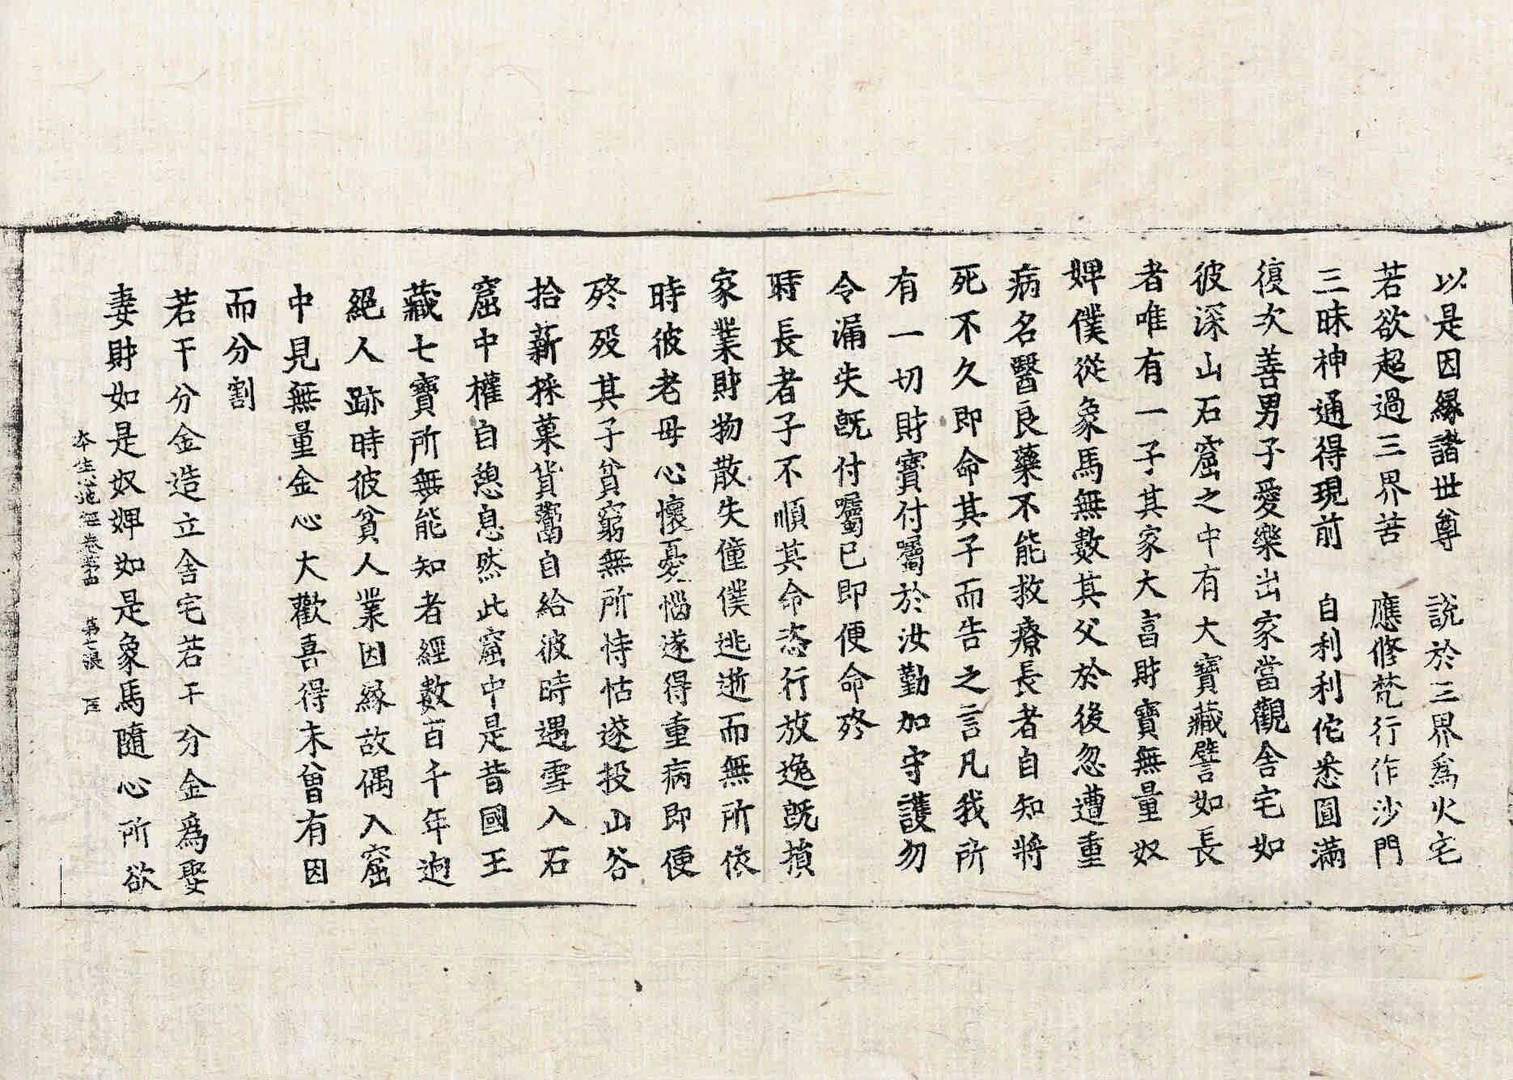 以是因緣諸世尊　說於三界爲火宅
若欲超過三界苦　應修梵行作沙門
三昧神通得現前　自利利佗悉圓滿
復次善男子愛樂出家當觀舍宅如
彼深山石窟之中有大寶藏譬如長
者唯有一子其家大富財寶無量奴
婢僕從象馬無數其父於後忽遭重
病名醫良藥不能救療長者自知將
死不久即命其子而告之言凡我所
有一切財寶付囑於汝勤加守護勿
令漏失旣付囑已即便命終
時長者子不順其命恣行放逸旣損
家業財物散失僮僕逃逝而無所依
時彼老母心懷憂惱遂得重病即便
終歿其子貧窮無所恃怙遂投山谷
拾薪採菓貨鬻自給彼時遇雪入石
窟中權自憩息然此窟中是昔國王
藏七寶所無能知者經數百千年逈
絕人跡時彼貧人業因緣故偶入窟
中見無量金心大歡喜得未曾有因
而分割
若干分金造立舍宅若干分金爲娶
妻財如是奴婢如是象馬隨心所欲
本生心地經卷第四　第七張